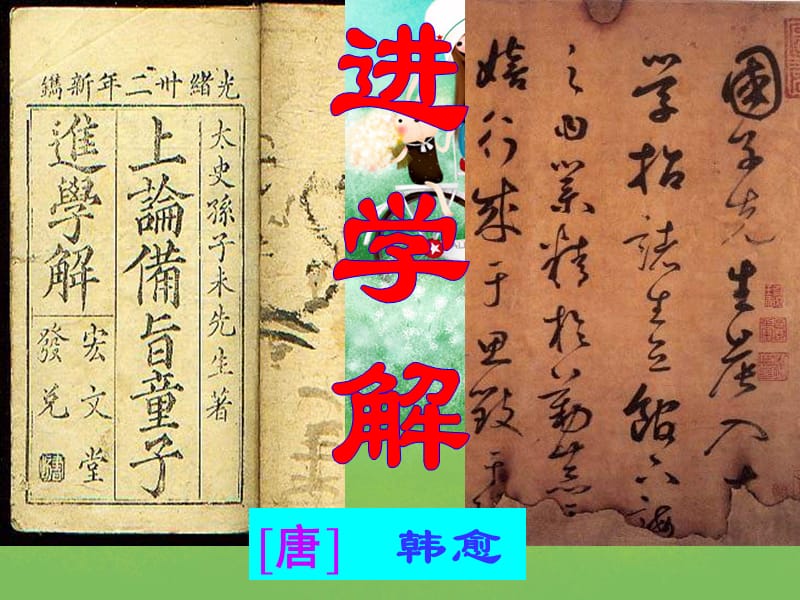 光緒卅二年新鐫
太史孫子未先生著
上論備旨童子
進學解
宏文堂
發兌
进学解
國子先生晨入太
学招諸生立館下誨
之曰業精於勤荒于
嬉行成于思毀于
[唐] 韩愈